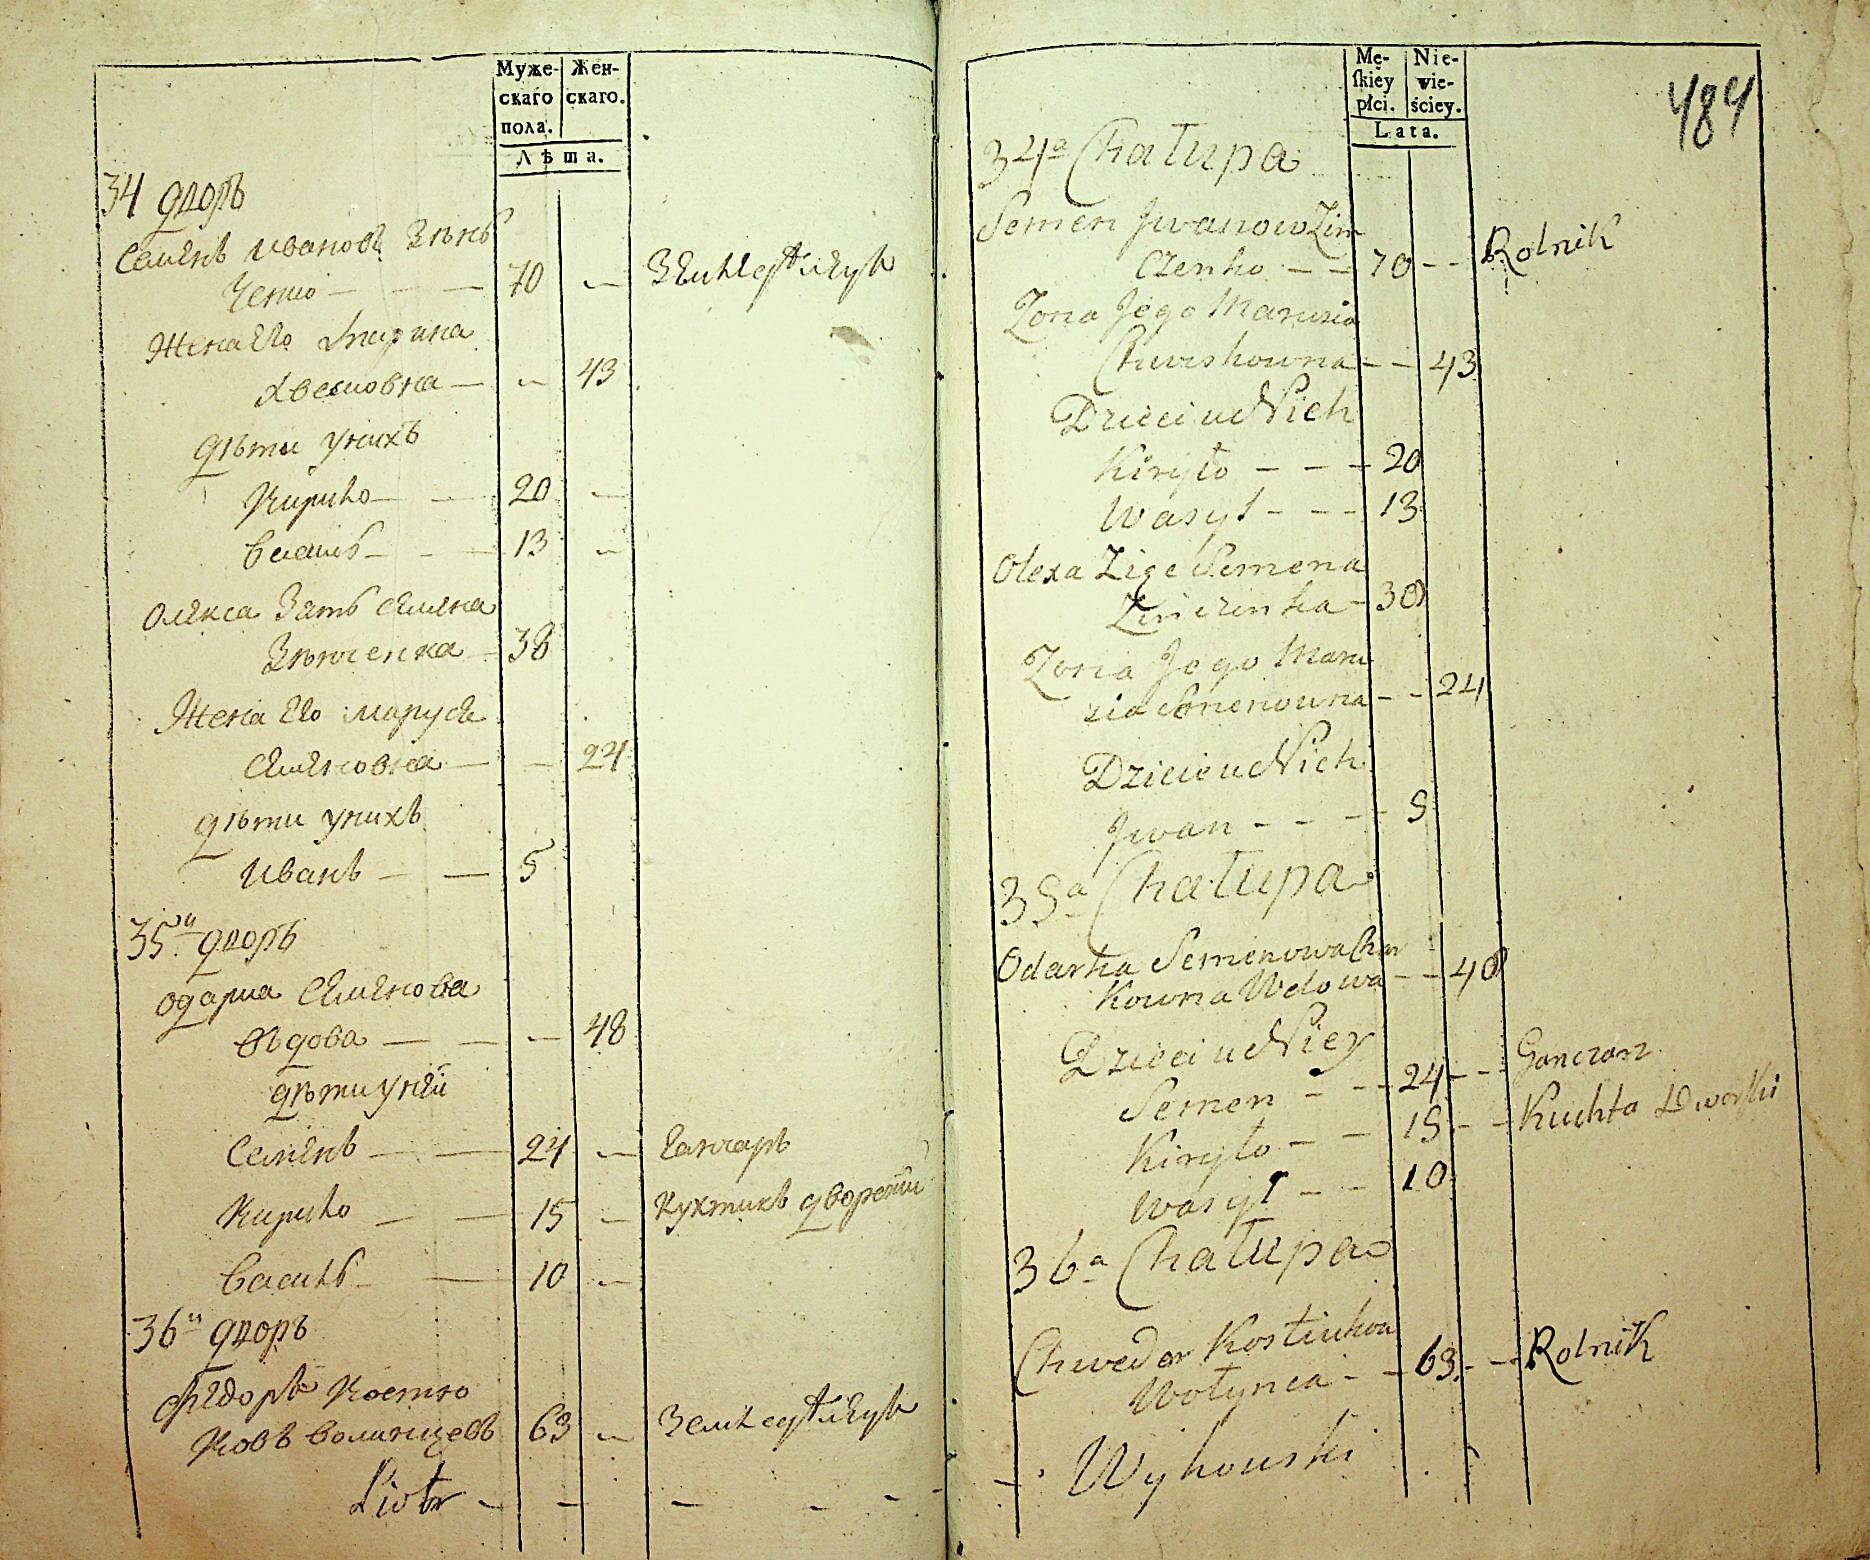 Муже-
скаго
пола.
Жен-
скаго.
Лѣта.
34 дворъ
Семенъ Ивановъ Зѣнь
ченко — — — 70 —
Жена Его Марина
Хвесковна — — 43
дѣти унихъ
Кирило — — 20 —
Василь — — 13 —
Олекса Зять Семена
Зѣнченка — 38
Жена Его Маруся
Семеновна — — 24
дѣти унихъ
Иванъ — — 5
35й дворъ
Одарка Семенова
вдова — — — 48
дѣти унѣй
Семенъ — — 24 — Ганчаръ
Кирило — — 15 — Кухтикъ дворскій
Василь — — 10 —
36й дворъ
Федоръ Костю
ковъ Волинцевъ 63 —
Piotr — — — — — —
Mę-
skiey
płci.
Nie-
wie-
ściey.
Lata.
484
34a Chałupa
Semen Jwanow Zin
czenko — — 70 — — Rolnik
Zona Jego Marusia
Chwiskowna — — 43
Dzieci u Nich
Kiryło — — — 20
Wasyl — — — 13
Olexa Zięć Semena
Zinczenka — 38
Zona Jego Maru
sia Semenowna — — 24
Dzieci u Nich
Jwan — — — 5
35a Chałupa
Odarka Semenowa Char
kowna Wdowa — — 48
Dzieci u Niey
Semen — — — 24 — — Ganczarz
Kiryło — — 15 — — Kuchta Dworski
Wasyl — — 10
36a Chałupa
Chwedor Kostiukow
Wołynca — — 63 — — Rolnik
— Wykowski